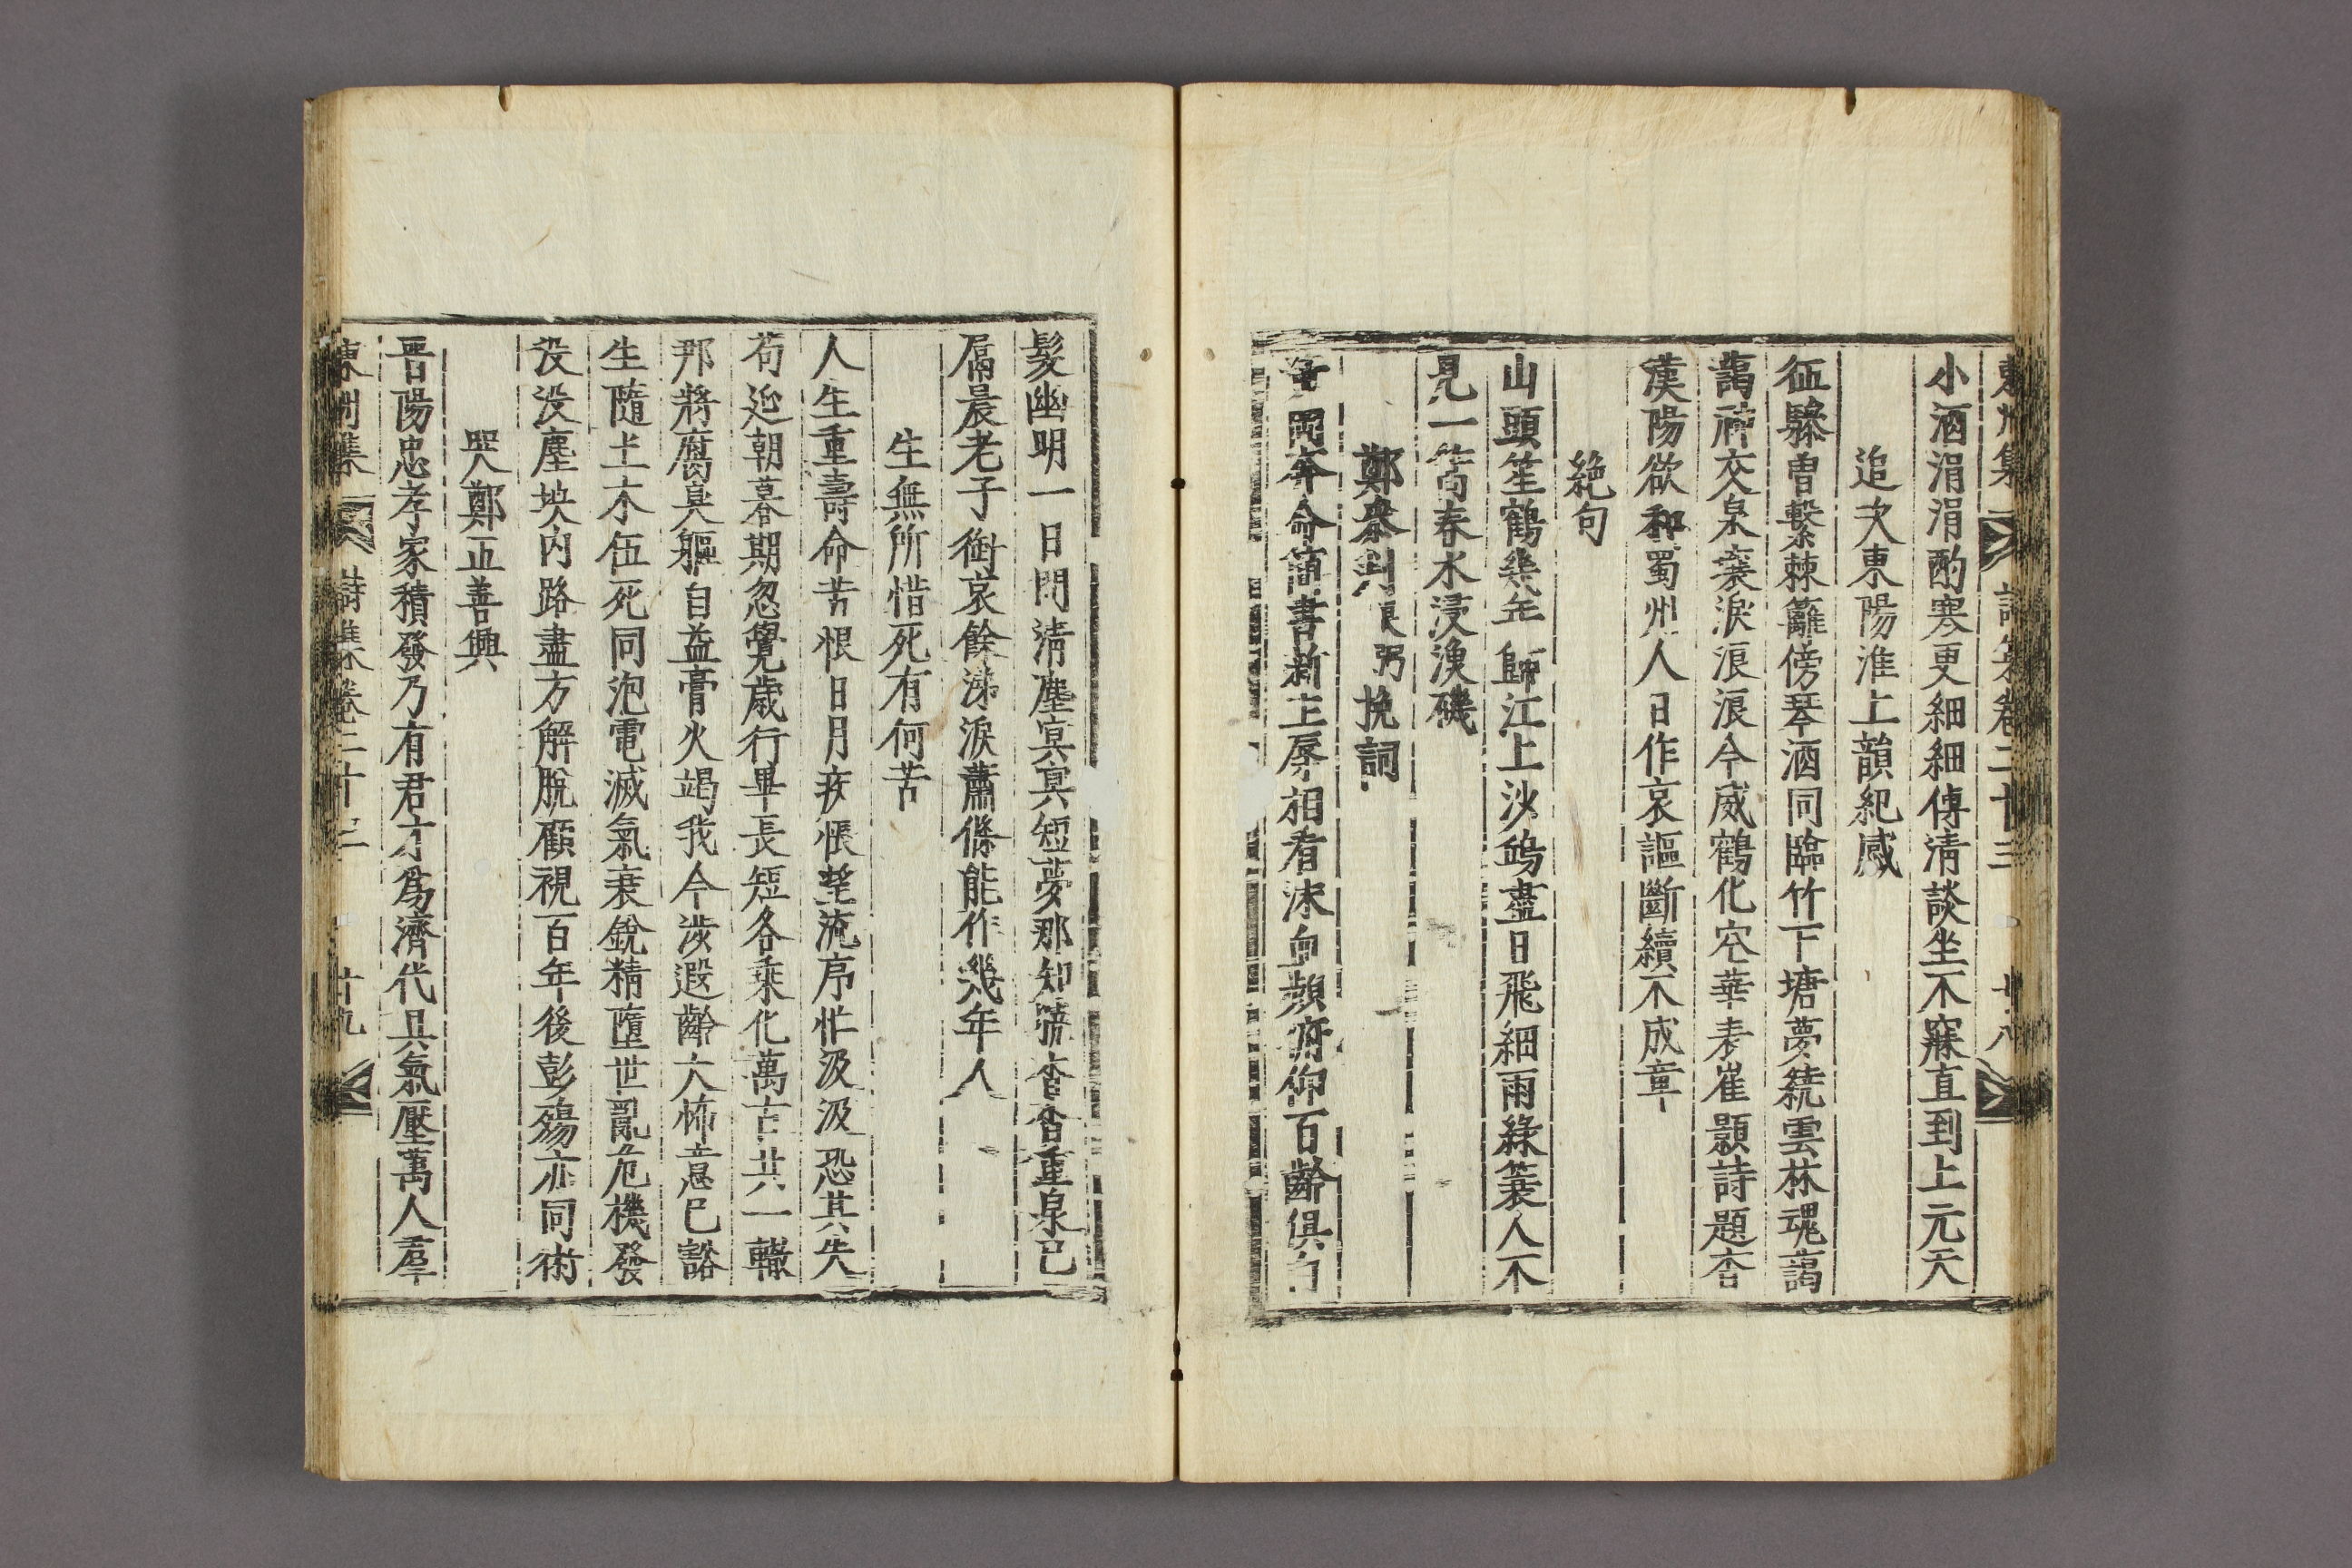 小酒涓涓酌寒更細細傳清談坐不寐直到上元天
追次東陽淮上韻紀感
征驂曾繫棘籬傍琴酒同臨竹下塘夢繞雲林魂藹
藹神交泉壤淚浪浪今威鶴化空華表崔顥詩題杳
漢陽欲和蜀州人日作哀謳斷續不成章
絶句
山頭笙鶴幾年歸江上沙鷗盡日飛細雨綠蓑人不
見一篙春水浸漁磯
鄭泰判良弼挽詞
奔命簡書新主辱相看沫血頻俯仰百齡俱白
髮幽明一日閒清塵冥冥短夢那知曉杳杳重泉已
屬晨老子銜哀餘涕淚蕭條能作幾年人
生無所惜死有何苦
人生重壽命苦恨日月疾悵望流序忙汲汲恐其失
苟延朝暮期忽覺歲行畢長短各乘化萬古共一轍
那將腐臭軀自益膏火竭我今涉遐齡大怖意已豁
生隨土木伍死同泡電滅氣衰銳精墮世亂危機發
役沒塵埃内路盡方解脫顧視百年後彭殤亦同術
哭鄭正善興
晋陽忠孝家積發乃有君才爲濟代具氣壓萬人羣
東州集 詩集卷二十三 廿九